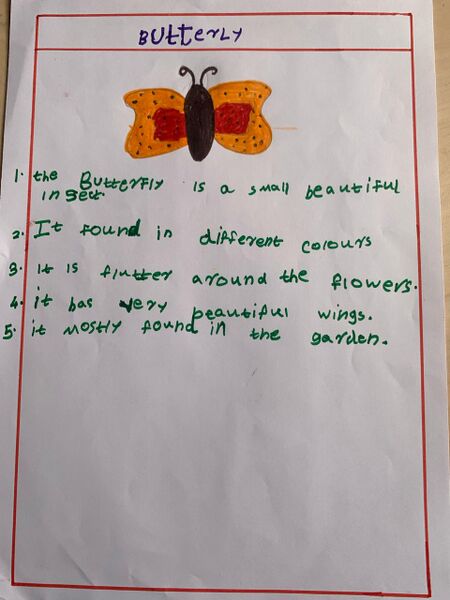 BUtterLY
1. the Butterfly is a small beautiful
insect.
2. It found in different colours
3. it is flutter around the flowers.
4. it has very beautiful wings.
5. it mostly found in the garden.